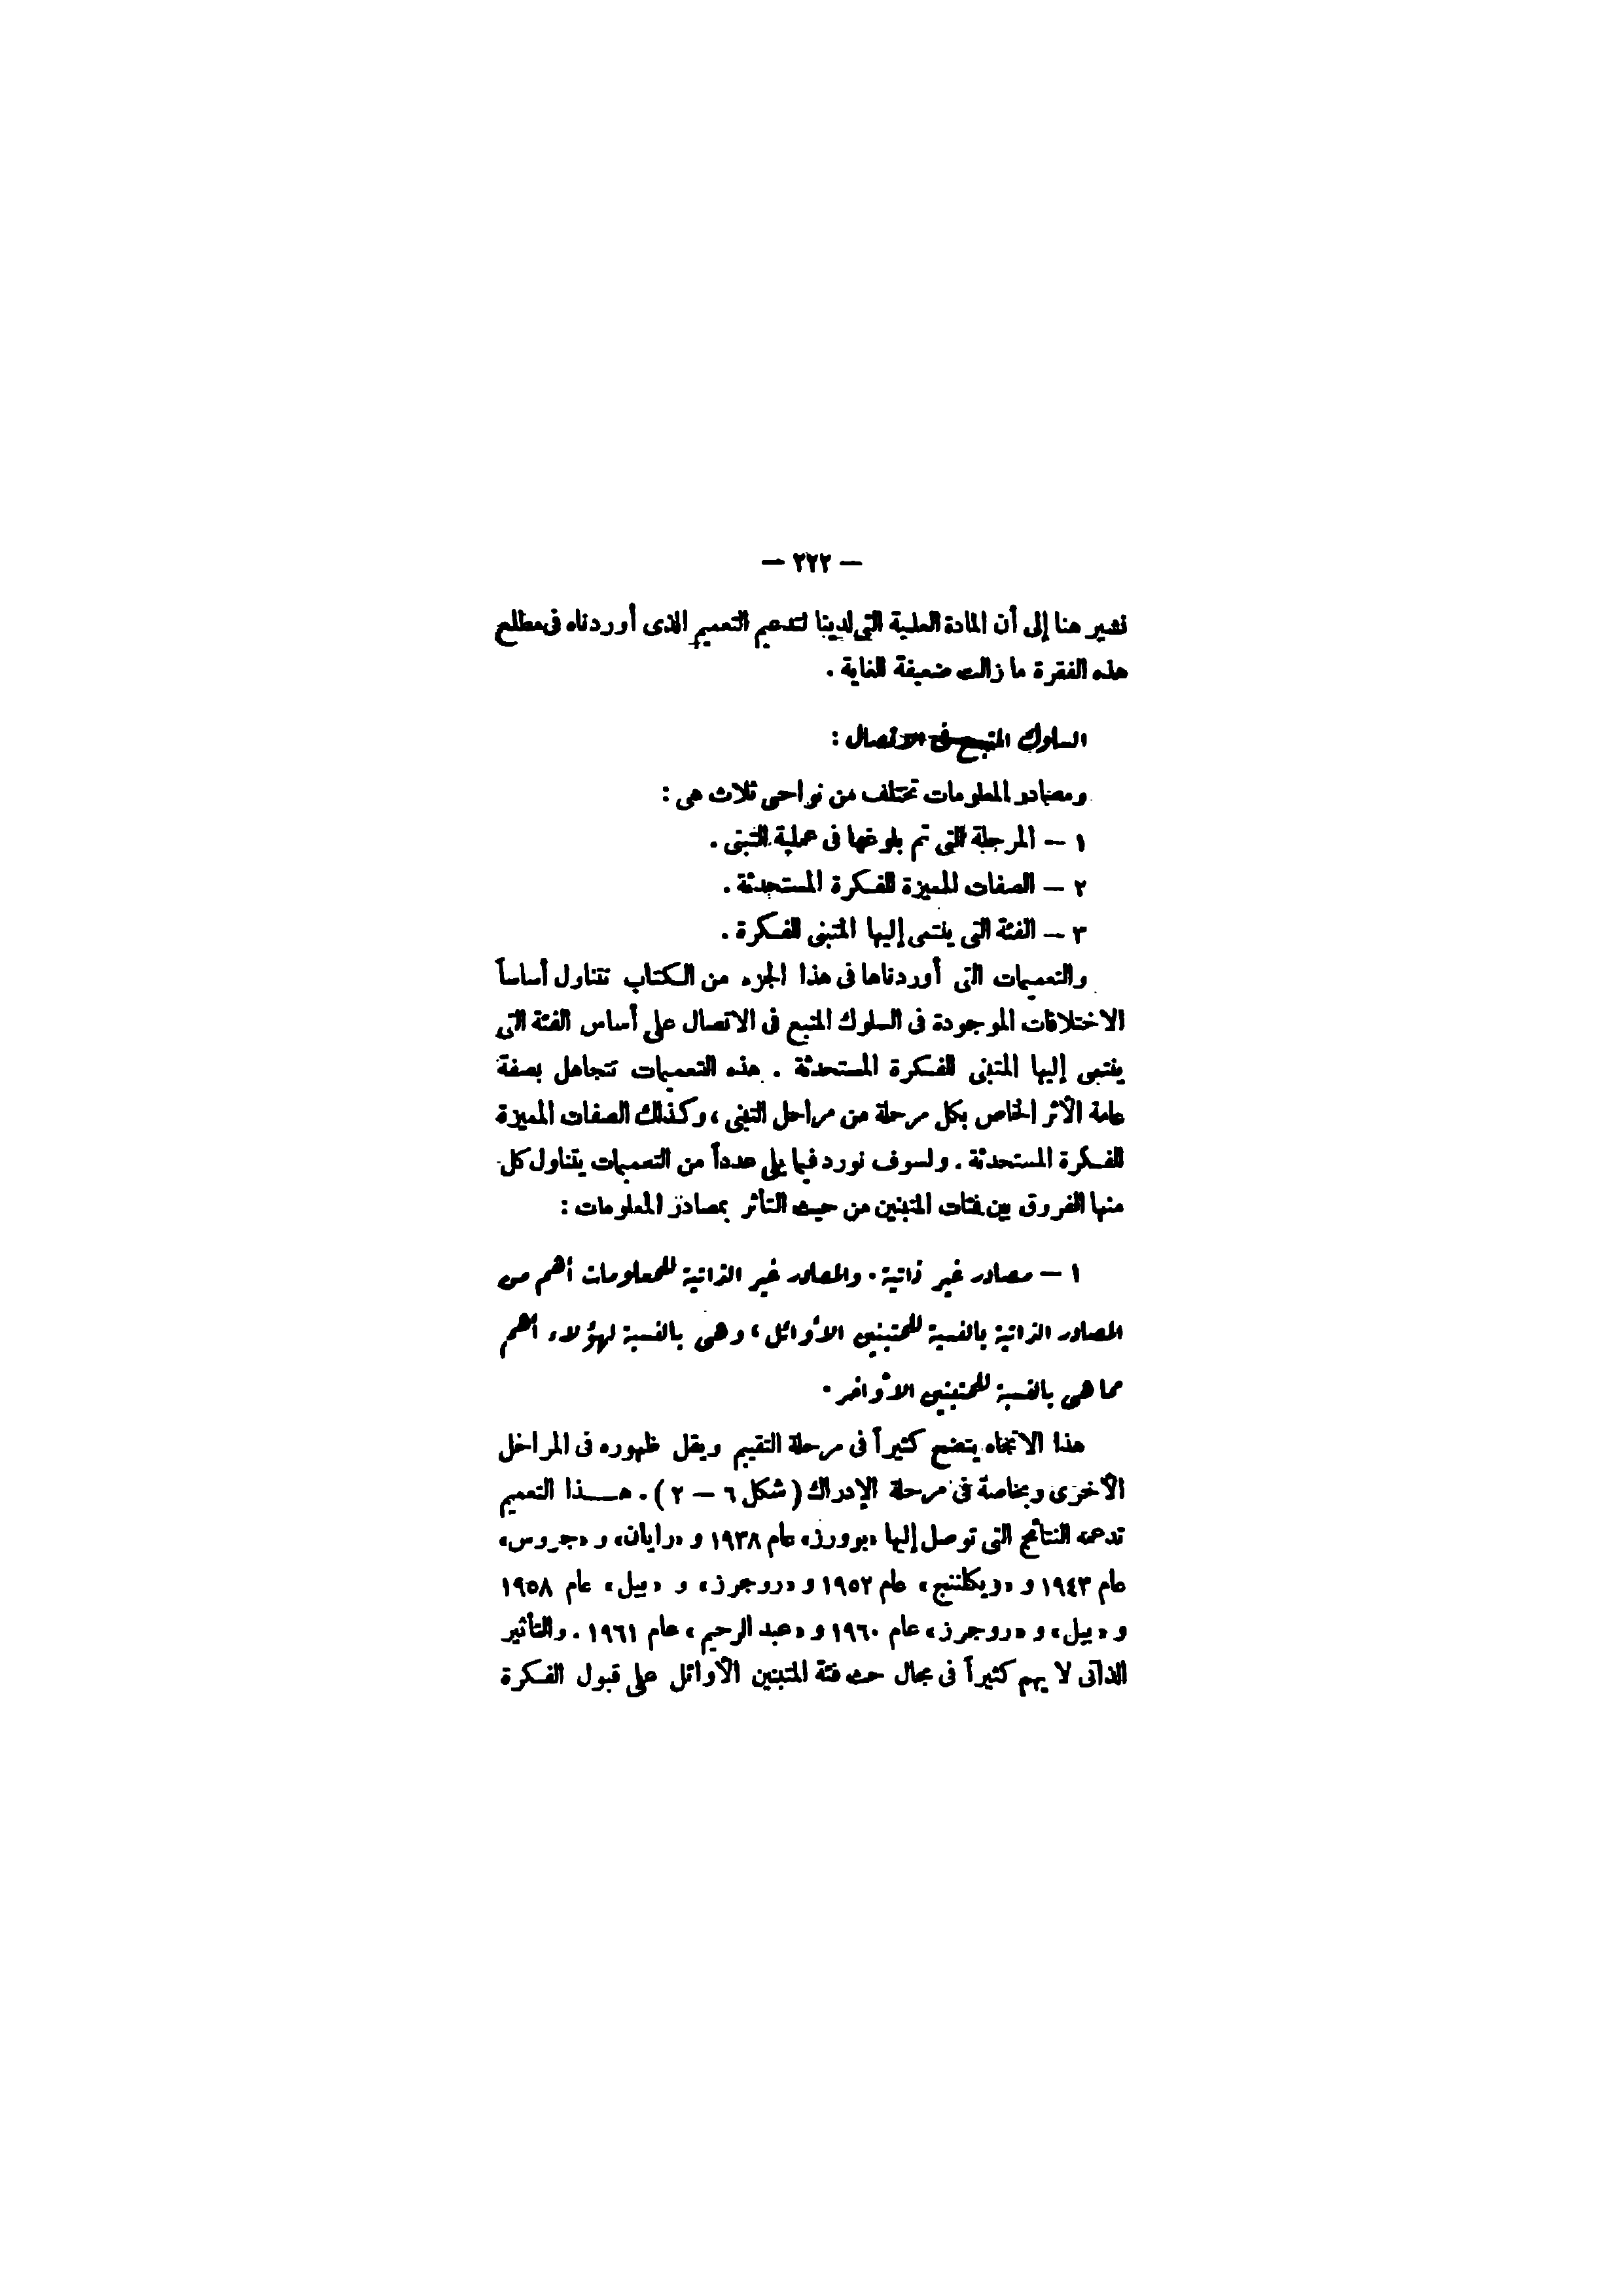 — ٢٢٢ —
نشير هنا إلى أن المادة العلمية التى لدينا لتدعيم التعميم الذى أوردناه فى مطلع
هذه الفقرة ما زالت ضعيفة للغاية .
السلوك المتبع فى الاتصال :
ومصادر المعلومات تختلف من نواحى ثلاث هى :
١ — المرحلة التى تم بلوغها فى عملية التبنى .
٢ — الصفات المميزة للفكرة المستحدثة .
٣ — الفئة التى ينتمى إليها المتبنى للفكرة .
والتعميمات التى أوردناها فى هذا الجزء من الكتاب تتناول أساساً
الاختلافات الموجودة فى السلوك المتبع فى الاتصال على أساس الفئة التى
ينتمى إليها المتبنى للفكرة المستحدثة . هذه التعميمات تتجاهل بصفة
عامة الأثر الخاص بكل مرحلة من مراحل التبنى ، وكذلك الصفات المميزة
للفكرة المستحدثة . ولسوف نورد فيما يلى عدداً من التعميمات يتناول كل
منها الفروق بين فئات المتبنين من حيث التأثر بمصادر المعلومات :
١ — مصادر غير ذاتية . والمصادر غير الذاتية للمعلومات أهم من
المصادر الذاتية بالنسبة للمتبنين الأوائل ، وهى بالنسبة لهؤلاء أهم
مما هى بالنسبة للمتبنين الأواخر .
هذا الاتجاه يتضح كثيراً فى مرحلة التقييم ويقل ظهوره فى المراحل
الأخرى وبخاصة فى مرحلة الإدراك ( شكل ٦ — ٢ ) . هــذا التعميم
تدعمه النتائج التى توصل إليها «بوورز» عام ١٩٣٨ و «رايان» و «جروس»
عام ١٩٤٣ و «ويكلننج» عام ١٩٥٢ و «روجرز» و «بيل» عام ١٩٥٨
و «بيل» و «روجرز» عام ١٩٦٠ و «عبد الرحيم» عام ١٩٦١ . والتأثير
الذاتى لا يهم كثيراً فى مجال حث فئة المتبنين الأوائل على قبول الفكرة